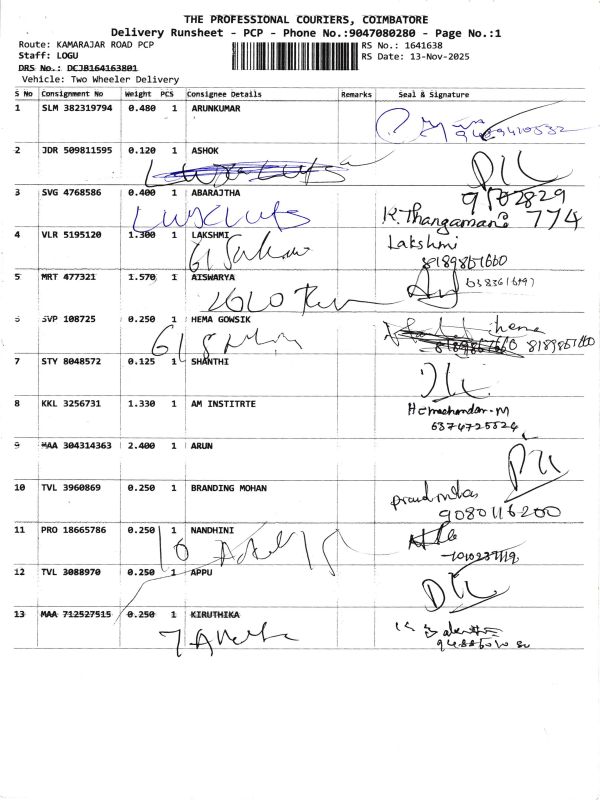 THE PROFESSIONAL COURIERS, COIMBATORE
Delivery Runsheet - PCP - Phone No.:9047080280 - Page No.:1
Route: KAMARAJAR ROAD PCP RS No.: 1641638
Staff: LOGU RS Date: 13-Nov-2025
DRS No.: DCJB164163801
Vehicle: Two Wheeler Delivery
S No Consignment No Weight PCS Consignee Details Remarks Seal & Signature
1 SLM 382319794 0.480 1 ARUNKUMAR
2 JDR 509811595 0.120 1 ASHOK
3 SVG 4768586 0.400 1 ABARAJTHA
K.Thangamani 774
4 VLR 5195120 1.300 1 LAKSHMI Lakshmi
8189867660
5 MRT 477321 1.570 1 AISWARYA
6 SVP 108725 0.250 1 HEMA GOWSIK hema
8189867660
7 STY 8048572 0.125 1 SHANTHI
8 KKL 3256731 1.330 1 AM INSTITRTE Hemachandar.M
6374725824
9 MAA 304314363 2.400 1 ARUN
10 TVL 3960869 0.250 1 BRANDING MOHAN
9080116200
11 PRO 18665786 0.250 1 NANDHINI
12 TVL 3088970 0.250 1 APPU
13 MAA 712527515 0.250 1 KIRUTHIKA